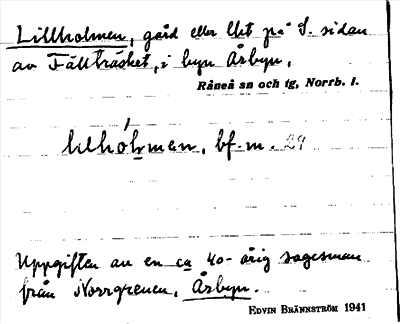 Lillholmen, gård eller lht på S. sidan
av Fällträsket, i byn Årbyn,
Råneå sn och tg, Norrb. l.
lilhólmen, bf. m. 29
Uppgiften av en ca 40-årig sagesman
från Norrgrenen, Årbyn.
EDVIN BRÄNNSTRÖM 1941